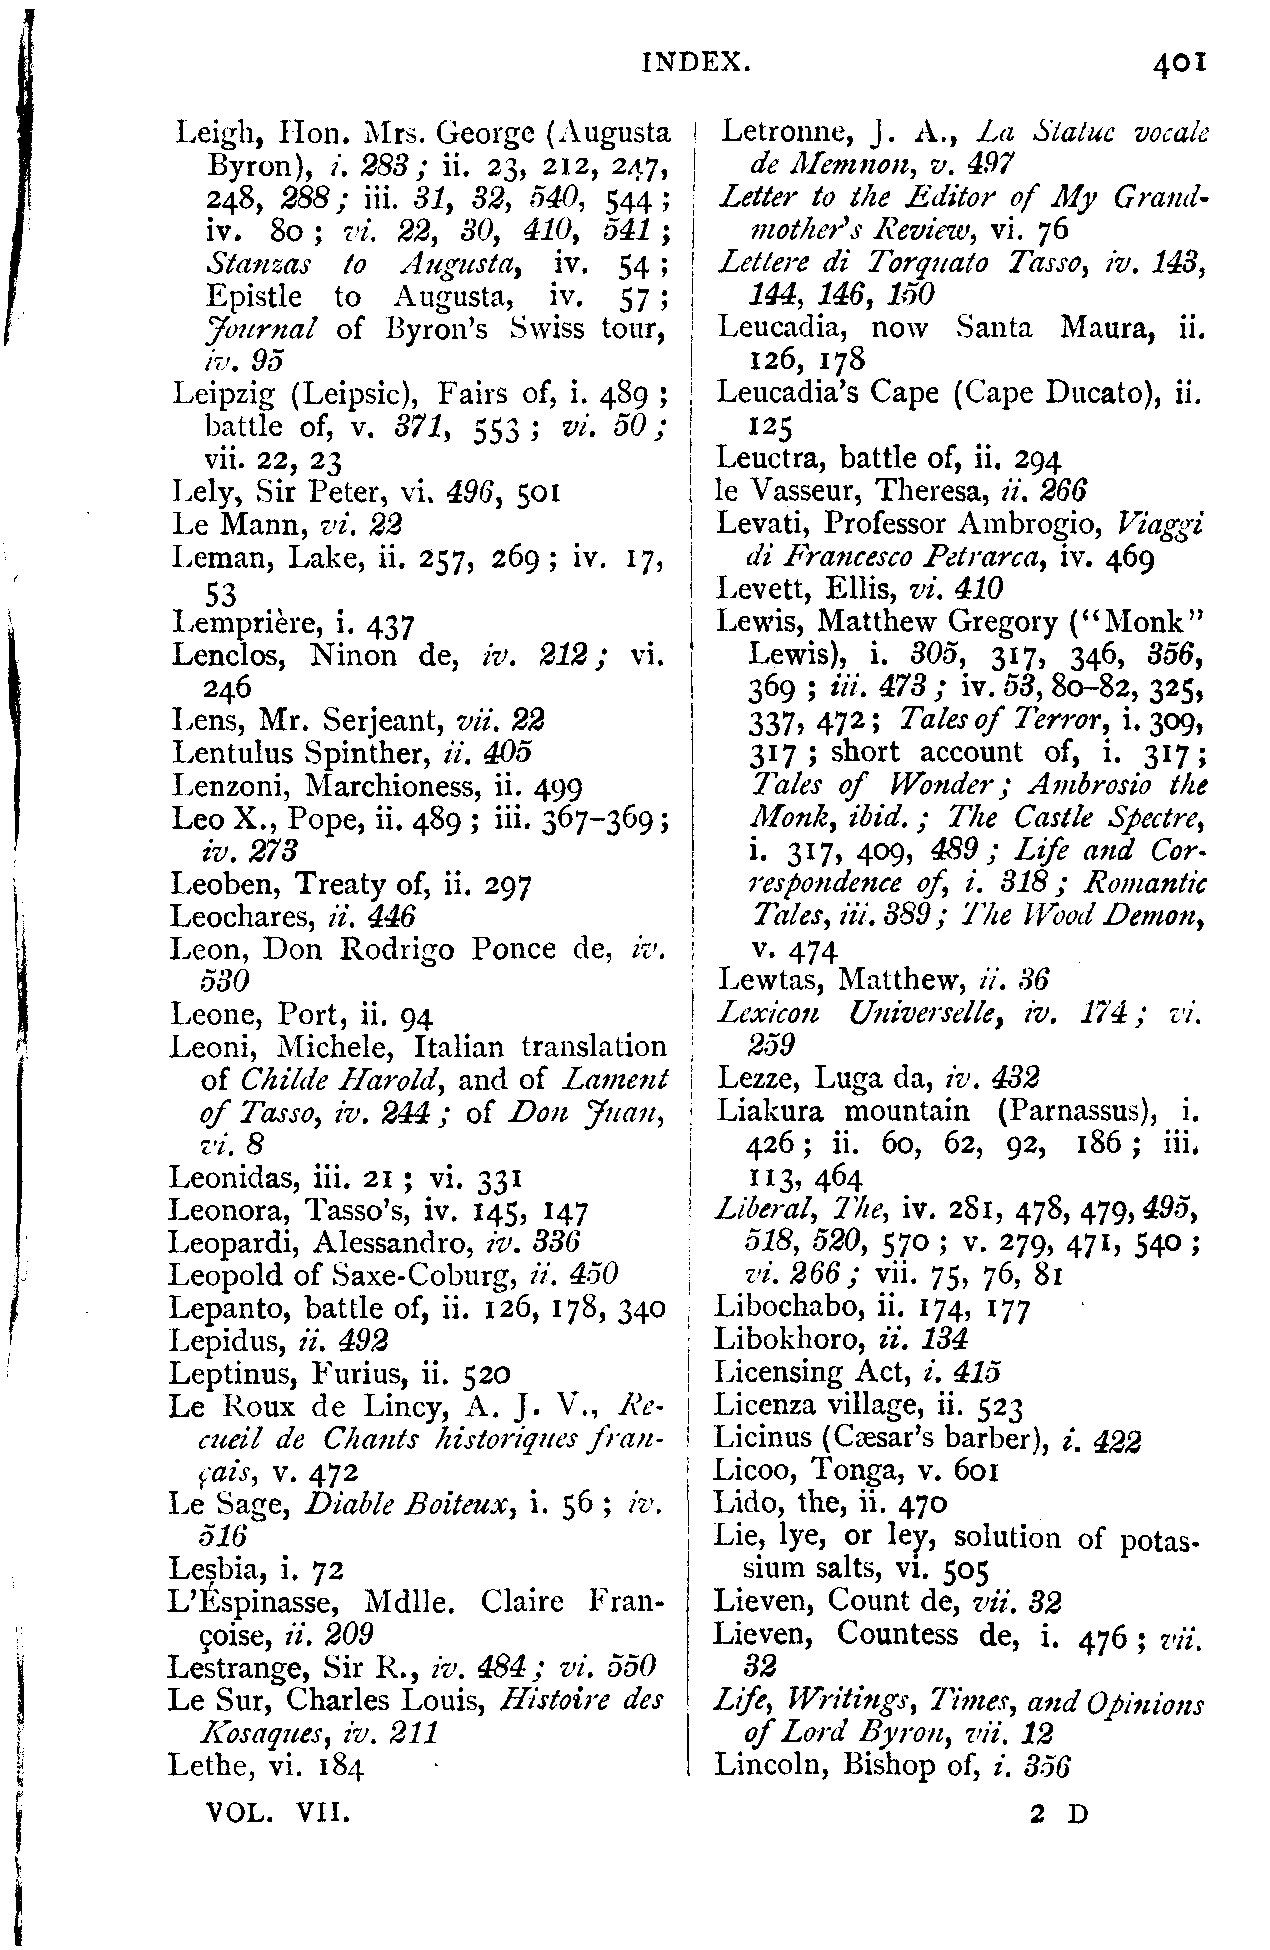 INDEX. 401
Leigh, Hon. Mrs. George (Augusta
Byron), i. 283; ii. 23, 212, 247,
248, 288; iii. 31, 32, 540, 544;
iv. 80; vi. 22, 30, 410, 541;
Stanzas to Augusta, iv. 54;
Epistle to Augusta, iv. 57;
Journal of Byron's Swiss tour,
iv. 95
Leipzig (Leipsic), Fairs of, i. 489;
battle of, v. 371, 553; vi. 50;
vii. 22, 23
Lely, Sir Peter, vi. 496, 501
Le Mann, vi. 22
Leman, Lake, ii. 257, 269; iv. 17,
53
Lemprière, i. 437
Lenclos, Ninon de, iv. 212; vi.
246
Lens, Mr. Serjeant, vii. 22
Lentulus Spinther, ii. 405
Lenzoni, Marchioness, ii. 499
Leo X., Pope, ii. 489; iii. 367–369;
iv. 273
Leoben, Treaty of, ii. 297
Leochares, ii. 446
Leon, Don Rodrigo Ponce de, iv.
530
Leone, Port, ii. 94
Leoni, Michele, Italian translation
of Childe Harold, and of Lament
of Tasso, iv. 244; of Don Juan,
vi. 8
Leonidas, iii. 21; vi. 331
Leonora, Tasso's, iv. 145, 147
Leopardi, Alessandro, iv. 336
Leopold of Saxe-Coburg, ii. 450
Lepanto, battle of, ii. 126, 178, 340
Lepidus, ii. 492
Leptinus, Furius, ii. 520
Le Roux de Lincy, A. J. V., Re-
cueil de Chants historiques fran-
çais, v. 472
Le Sage, Diable Boiteux, i. 56; iv.
516
Lesbia, i. 72
L'Éspinasse, Mdlle. Claire Fran-
çoise, ii. 209
Lestrange, Sir R., iv. 484; vi. 550
Le Sur, Charles Louis, Histoire des
Kosaques, iv. 211
Lethe, vi. 184
Letronne, J. A., La Statue vocale
de Memnon, v. 497
Letter to the Editor of My Grand-
mother's Review, vi. 76
Lettere di Torquato Tasso, iv. 143,
144, 146, 150
Leucadia, now Santa Maura, ii.
126, 178
Leucadia's Cape (Cape Ducato), ii.
125
Leuctra, battle of, ii. 294
le Vasseur, Theresa, ii. 266
Levati, Professor Ambrogio, Viaggi
di Francesco Petrarca, iv. 469
Levett, Ellis, vi. 410
Lewis, Matthew Gregory ("Monk"
Lewis), i. 305, 317, 346, 356,
369; iii. 473; iv. 53, 80–82, 325,
337, 472; Tales of Terror, i. 309,
317; short account of, i. 317;
Tales of Wonder; Ambrosio the
Monk, ibid.; The Castle Spectre,
i. 317, 409, 489; Life and Cor-
respondence of, i. 318; Romantic
Tales, iii. 389; The Wood Demon,
v. 474
Lewtas, Matthew, ii. 36
Lexicon Universelle, iv. 174; vi.
259
Lezze, Luga da, iv. 432
Liakura mountain (Parnassus), i.
426; ii. 60, 62, 92, 186; iii.
113, 464
Liberal, The, iv. 281, 478, 479, 495,
518, 520, 570; v. 279, 471, 540;
vi. 266; vii. 75, 76, 81
Libochabo, ii. 174, 177
Libokhoro, ii. 134
Licensing Act, i. 415
Licenza village, ii. 523
Licinus (Cæsar's barber), i. 422
Licoo, Tonga, v. 601
Lido, the, ii. 470
Lie, lye, or ley, solution of potas-
sium salts, vi. 505
Lieven, Count de, vii. 32
Lieven, Countess de, i. 476; vii.
32
Life, Writings, Times, and Opinions
of Lord Byron, vii. 12
Lincoln, Bishop of, i. 356
VOL. VII. 2 D